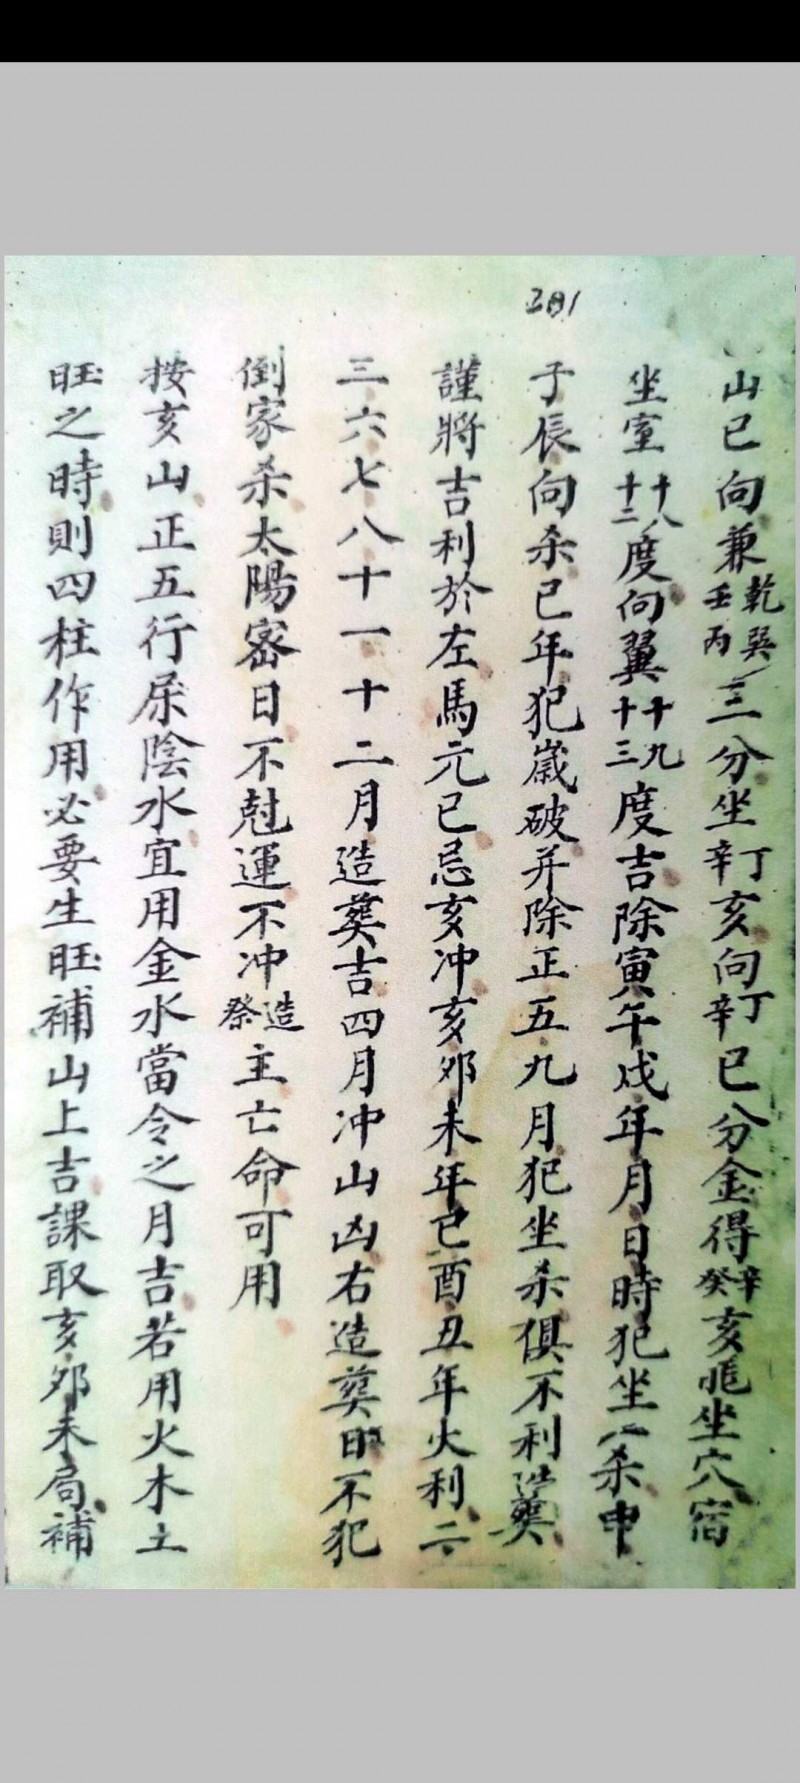 281
山巳向兼乾巽壬丙三分坐丁亥辛亥向丁巳辛巳分金得辛亥癸亥兆坐穴宿
坐室十八十二度向翼十九十三度吉除寅午戌年月日時犯坐八杀申
子辰向杀巳年犯歲破并除正五九月犯坐杀俱不利造葬
謹將吉利於左馬元巳忌亥冲亥夘未年巳酉丑年大利二
三六七八十一十二月造葬吉四月冲山凶右造葬日不犯
倒家杀太陽密日不尅運不冲造祭主亡命可用
按亥山正五行屬陰水宜用金水當令之月吉若用火木土
旺之時則四柱作用必要生旺補山上吉課取亥夘未局補